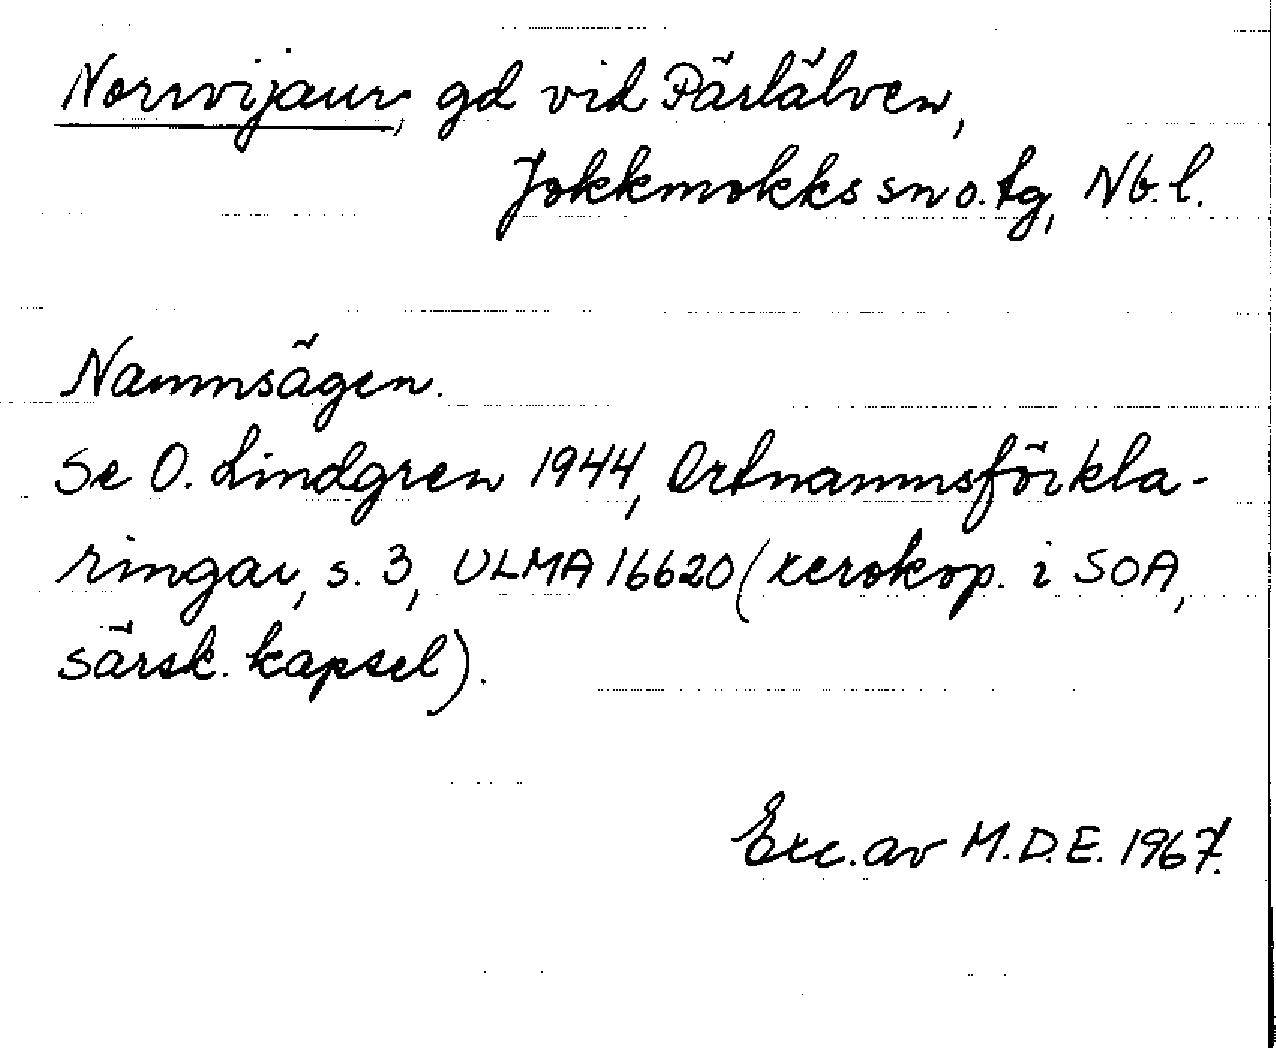 Norrvijaur, gd vid Pärlälven,
Jokkmokks sn o. tg, Nb. l.
Namnsägen.
Se O. Lindgren 1944, Ortnamnsförkla-
ringar, s. 3, ULMA 16620 (xerokop. i SOA,
särsk. kapsel).
Exc. av M.D.E. 1967.